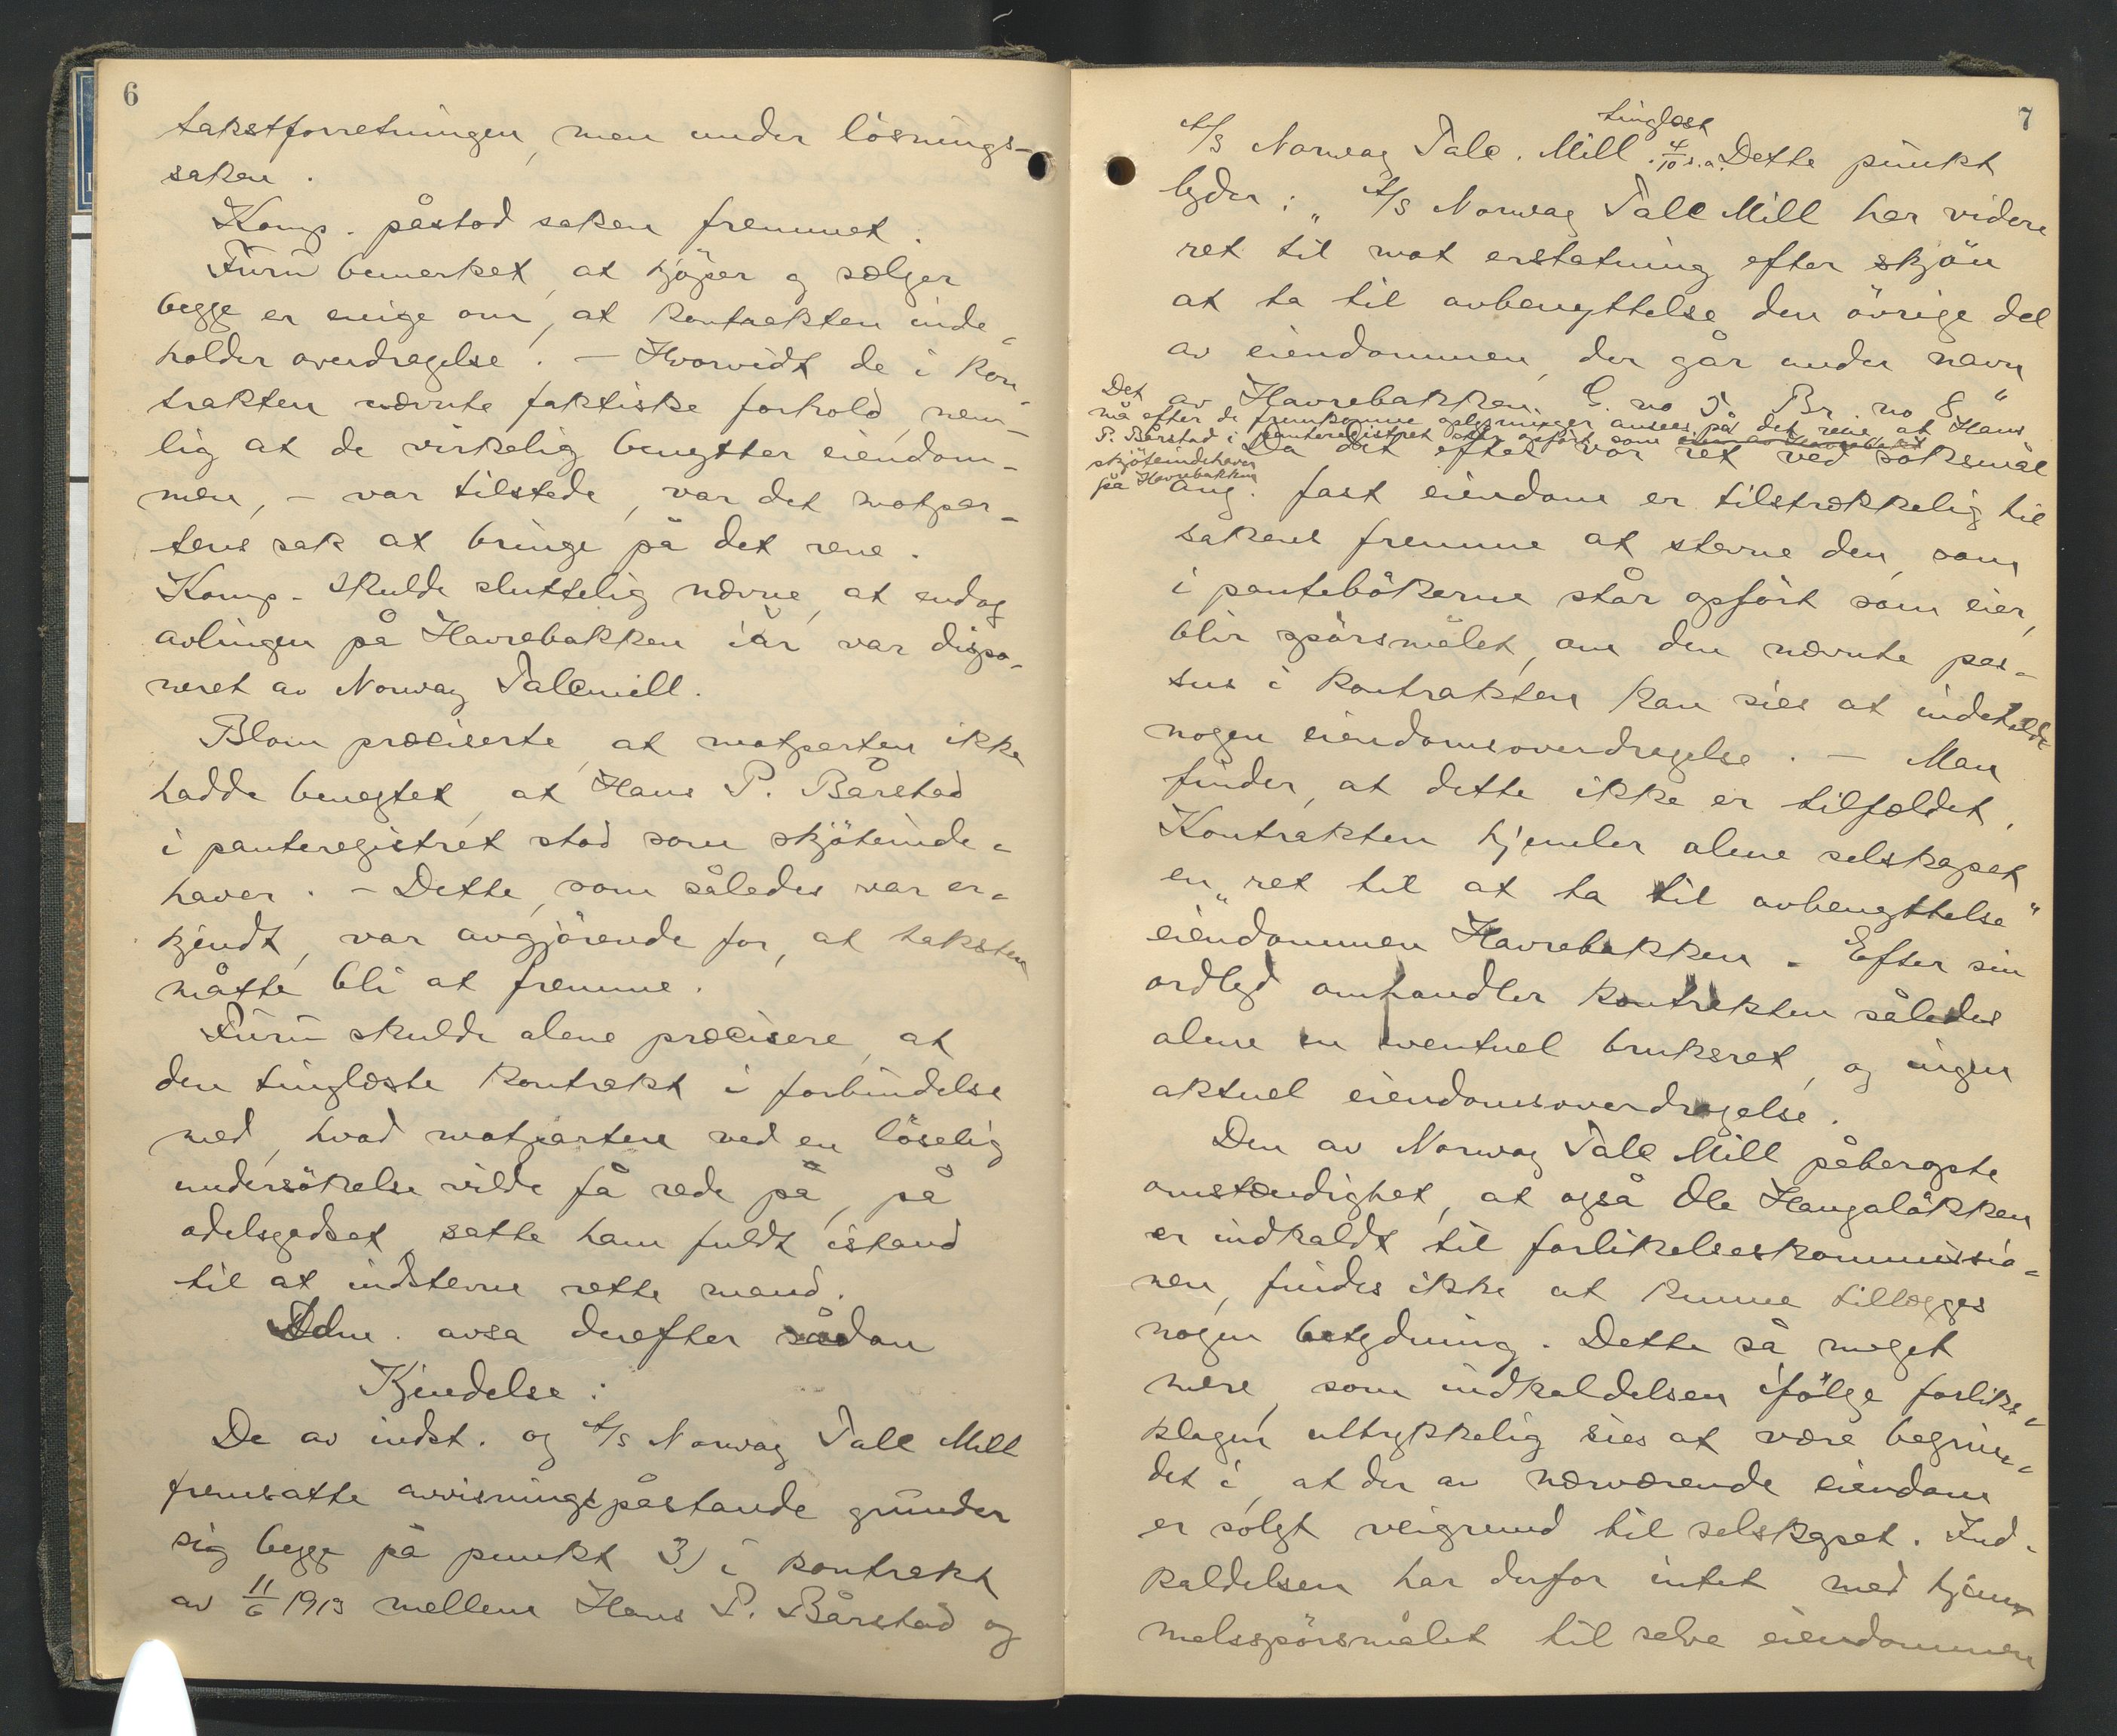 6
takstforretningen, men under lösnings-
saken.
Komp. påstod saken fremmet.
Furu bemerket, at kjöper og sælger
begge er enige om, at kontrakten inde-
holder overdragelse. - Hvorvidt de i kon-
trakten nævnte faktiske forhold, nem-
lig at de virkelig benytter eiendom-
men, - var tilstede, var det motpar-
tens sak at bringe på det rene.
Komp. skulde sluttelig nævne, at endog
avlingen på Havrebakken iår var dispo-
neret av Norway Talcmill.
Blom præciserte, at motparten ikke
hadde benegtet, at Hans P. Bårstad
i panteregistret stod som skjöteinde-
haver. - Dette, som således var er-
kjendt, var avgjörende for, at taksten
måtte bli at fremme.
Furu skulde alene præcisere, at
den tinglæste kontrakt i forbindelse
med, hvad motparten ved en löselig
undersökelse vilde få rede på, på
odelsgodset, satte ham fuldt istand
til at indstevne rette mand.
Adm. avsa derefter sådan
Kjendelse:
De av indst. og A/S Norway Talc Mill
fremsatte avvisningspåstande grunder
sig begge på punkt 3) i kontrakt
av 11/6 1913 mellem Hans P. Bårstad og
7
tinglæst
A/S Norway Talc. Mill. 4/10 s.a. Dette punkt
lyder: "A/S Norway Talc Mill har videre
ret til mot erstatning efter skjön
at ta til avbenyttelse den övrige del
av eiendommen, der går under navn
av Havrebakken G. no 5 Br. no 8"
Det
må efter de fremkomne oplysninger ansees på det rene, at Hans
P. Bårstad i panteregistret står opfört som
skjöteindehaver
på Havrebakken
Da det efter vor ret ved söksmål
ang. fast eiendom er tilstrækkelig til
sakens fremme at stevne den, som
i pantebökerne står opfört som eier,
blir spörsmålet, om den nævnte pas-
sus i kontrakten kan sies at indeholde
nogen eiendomsoverdragelse. - Man
finder, at dette ikke er tilfældet.
Kontrakten hjemler alene selskapet
en "ret til at ta til avbenyttelse"
eiendommen Havrebakken. Efter sin
ordlyd omhandler kontrakten således
alene en eventuel bruksret, og ingen
aktuel eiendomsoverdragelse.
Den av Norway Talc Mill påberopte
omstændighet, at også Ole Haugalökken
er indkaldt til forlikelseskommissio-
nen, findes ikke at kunne tillægges
nogen betydning. Dette så meget
mere, som indkaldelsen ifölge forliks-
klagen uttrykkelig sies at være begrun-
det i, at der av nærværende eiendom
er solgt veigrund til selskapet. Ind-
kaldelsen har derfor intet med hjem-
melsspörsmålet til selve eiendommen